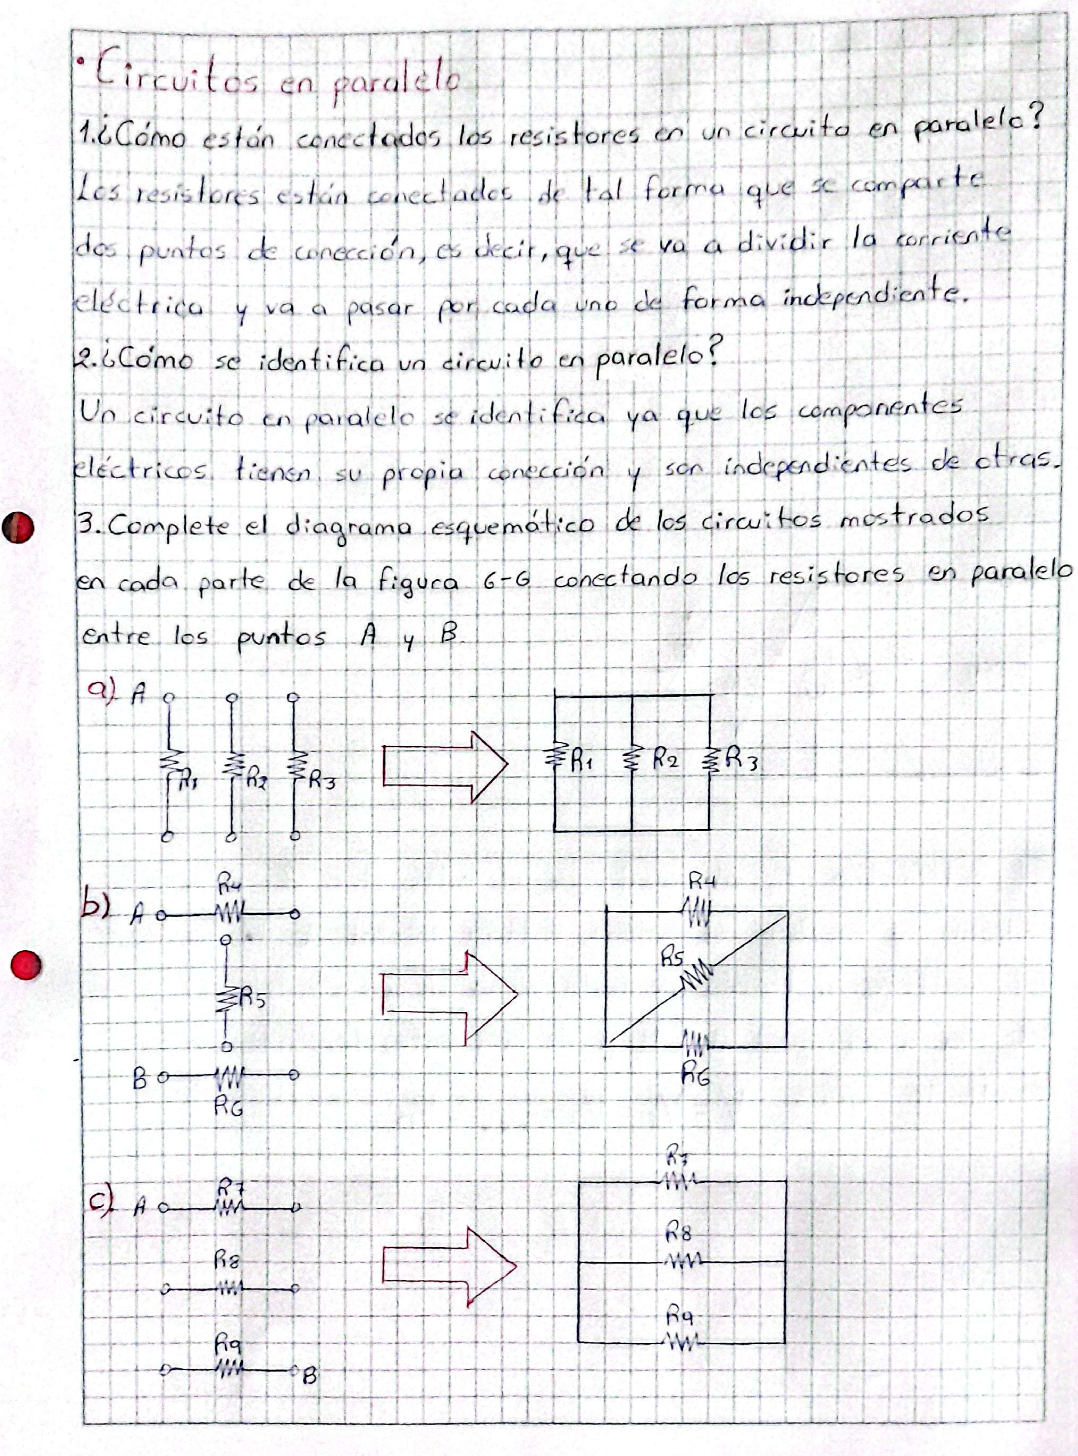 • Circuitos en paralelo
1. ¿Cómo están conectados los resistores en un circuito en paralelo?
Los resistores están conectados de tal forma que se comparte
dos puntos de conección, es decir, que se va a dividir la corriente
eléctrica y va a pasar por cada uno de forma independiente.
2. ¿Cómo se identifica un circuito en paralelo?
Un circuito en paralelo se identifica ya que los componentes
eléctricos tienen su propia conección y son independientes de otras.
3. Complete el diagrama esquemático de los circuitos mostrados
en cada parte de la figura 6-6 conectando los resistores en paralelo
entre los puntos A y B.
a) A
R1 R2 R3 R1 R2 R3
R4 R4
b) A
R5 R5
B
R6 R6
R7 R7
c) A
R8 R8
R9 R9
B